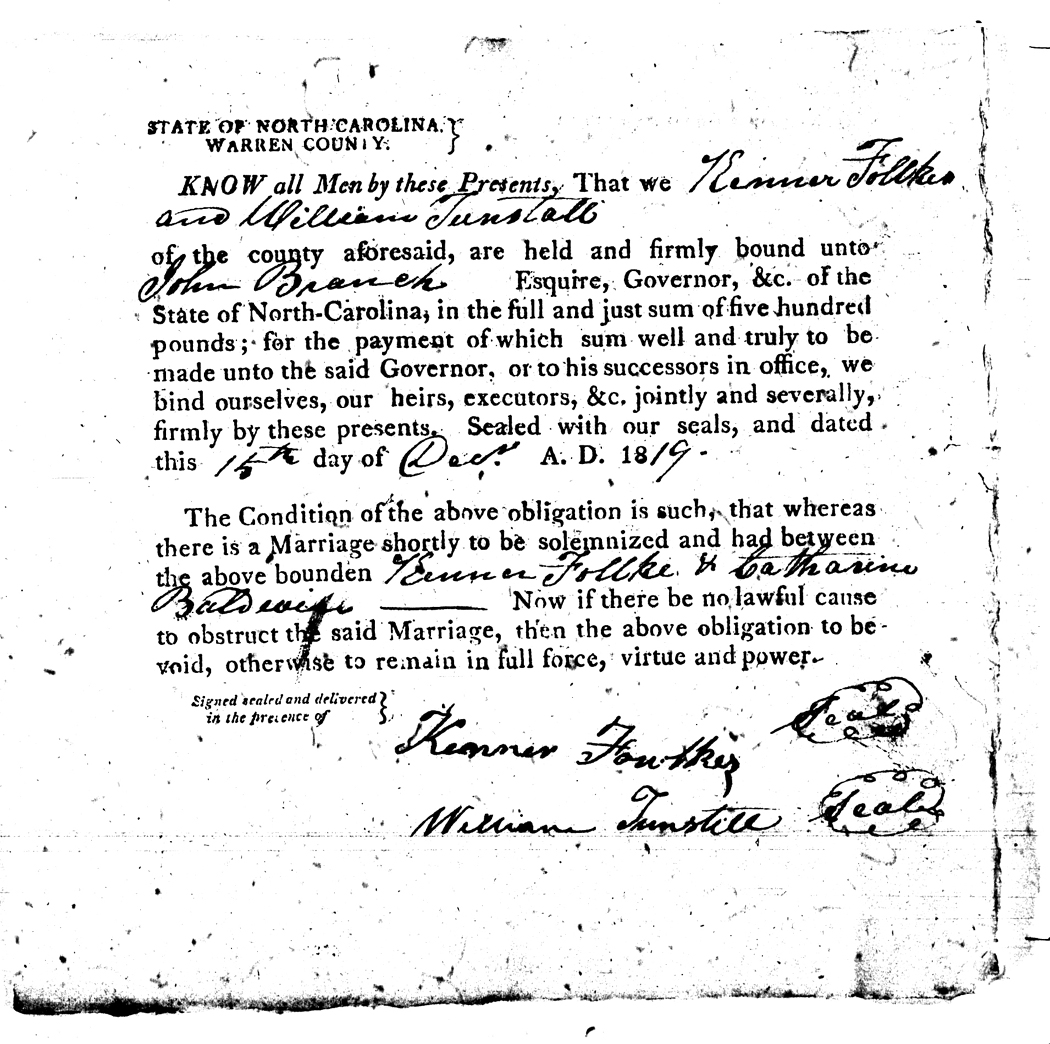 STATE OF NORTH CAROLINA.
WARREN COUNTY.
KNOW all Men by these Presents, That we Kenner Follkes
and William Tunstall
of the county aforesaid, are held and firmly bound unto
John Branch Esquire, Governor, &c. of the
State of North-Carolina, in the full and just sum of five hundred
pounds; for the payment of which sum well and truly to be
made unto the said Governor, or to his successors in office, we
bind ourselves, our heirs, executors, &c. jointly and severally,
firmly by these presents. Sealed with our seals, and dated
this 15th day of Decr. A. D. 1819.
The Condition of the above obligation is such, that whereas
there is a Marriage shortly to be solemnized and had between
the above bounden Kenner Follke & Catharine
Baldwin —— Now if there be no lawful cause
to obstruct the said Marriage, then the above obligation to be
void, otherwise to remain in full force, virtue and power.
Signed sealed and delivered
in the presence of
Kenner Fowlkes Seal
William Tunstill Seal